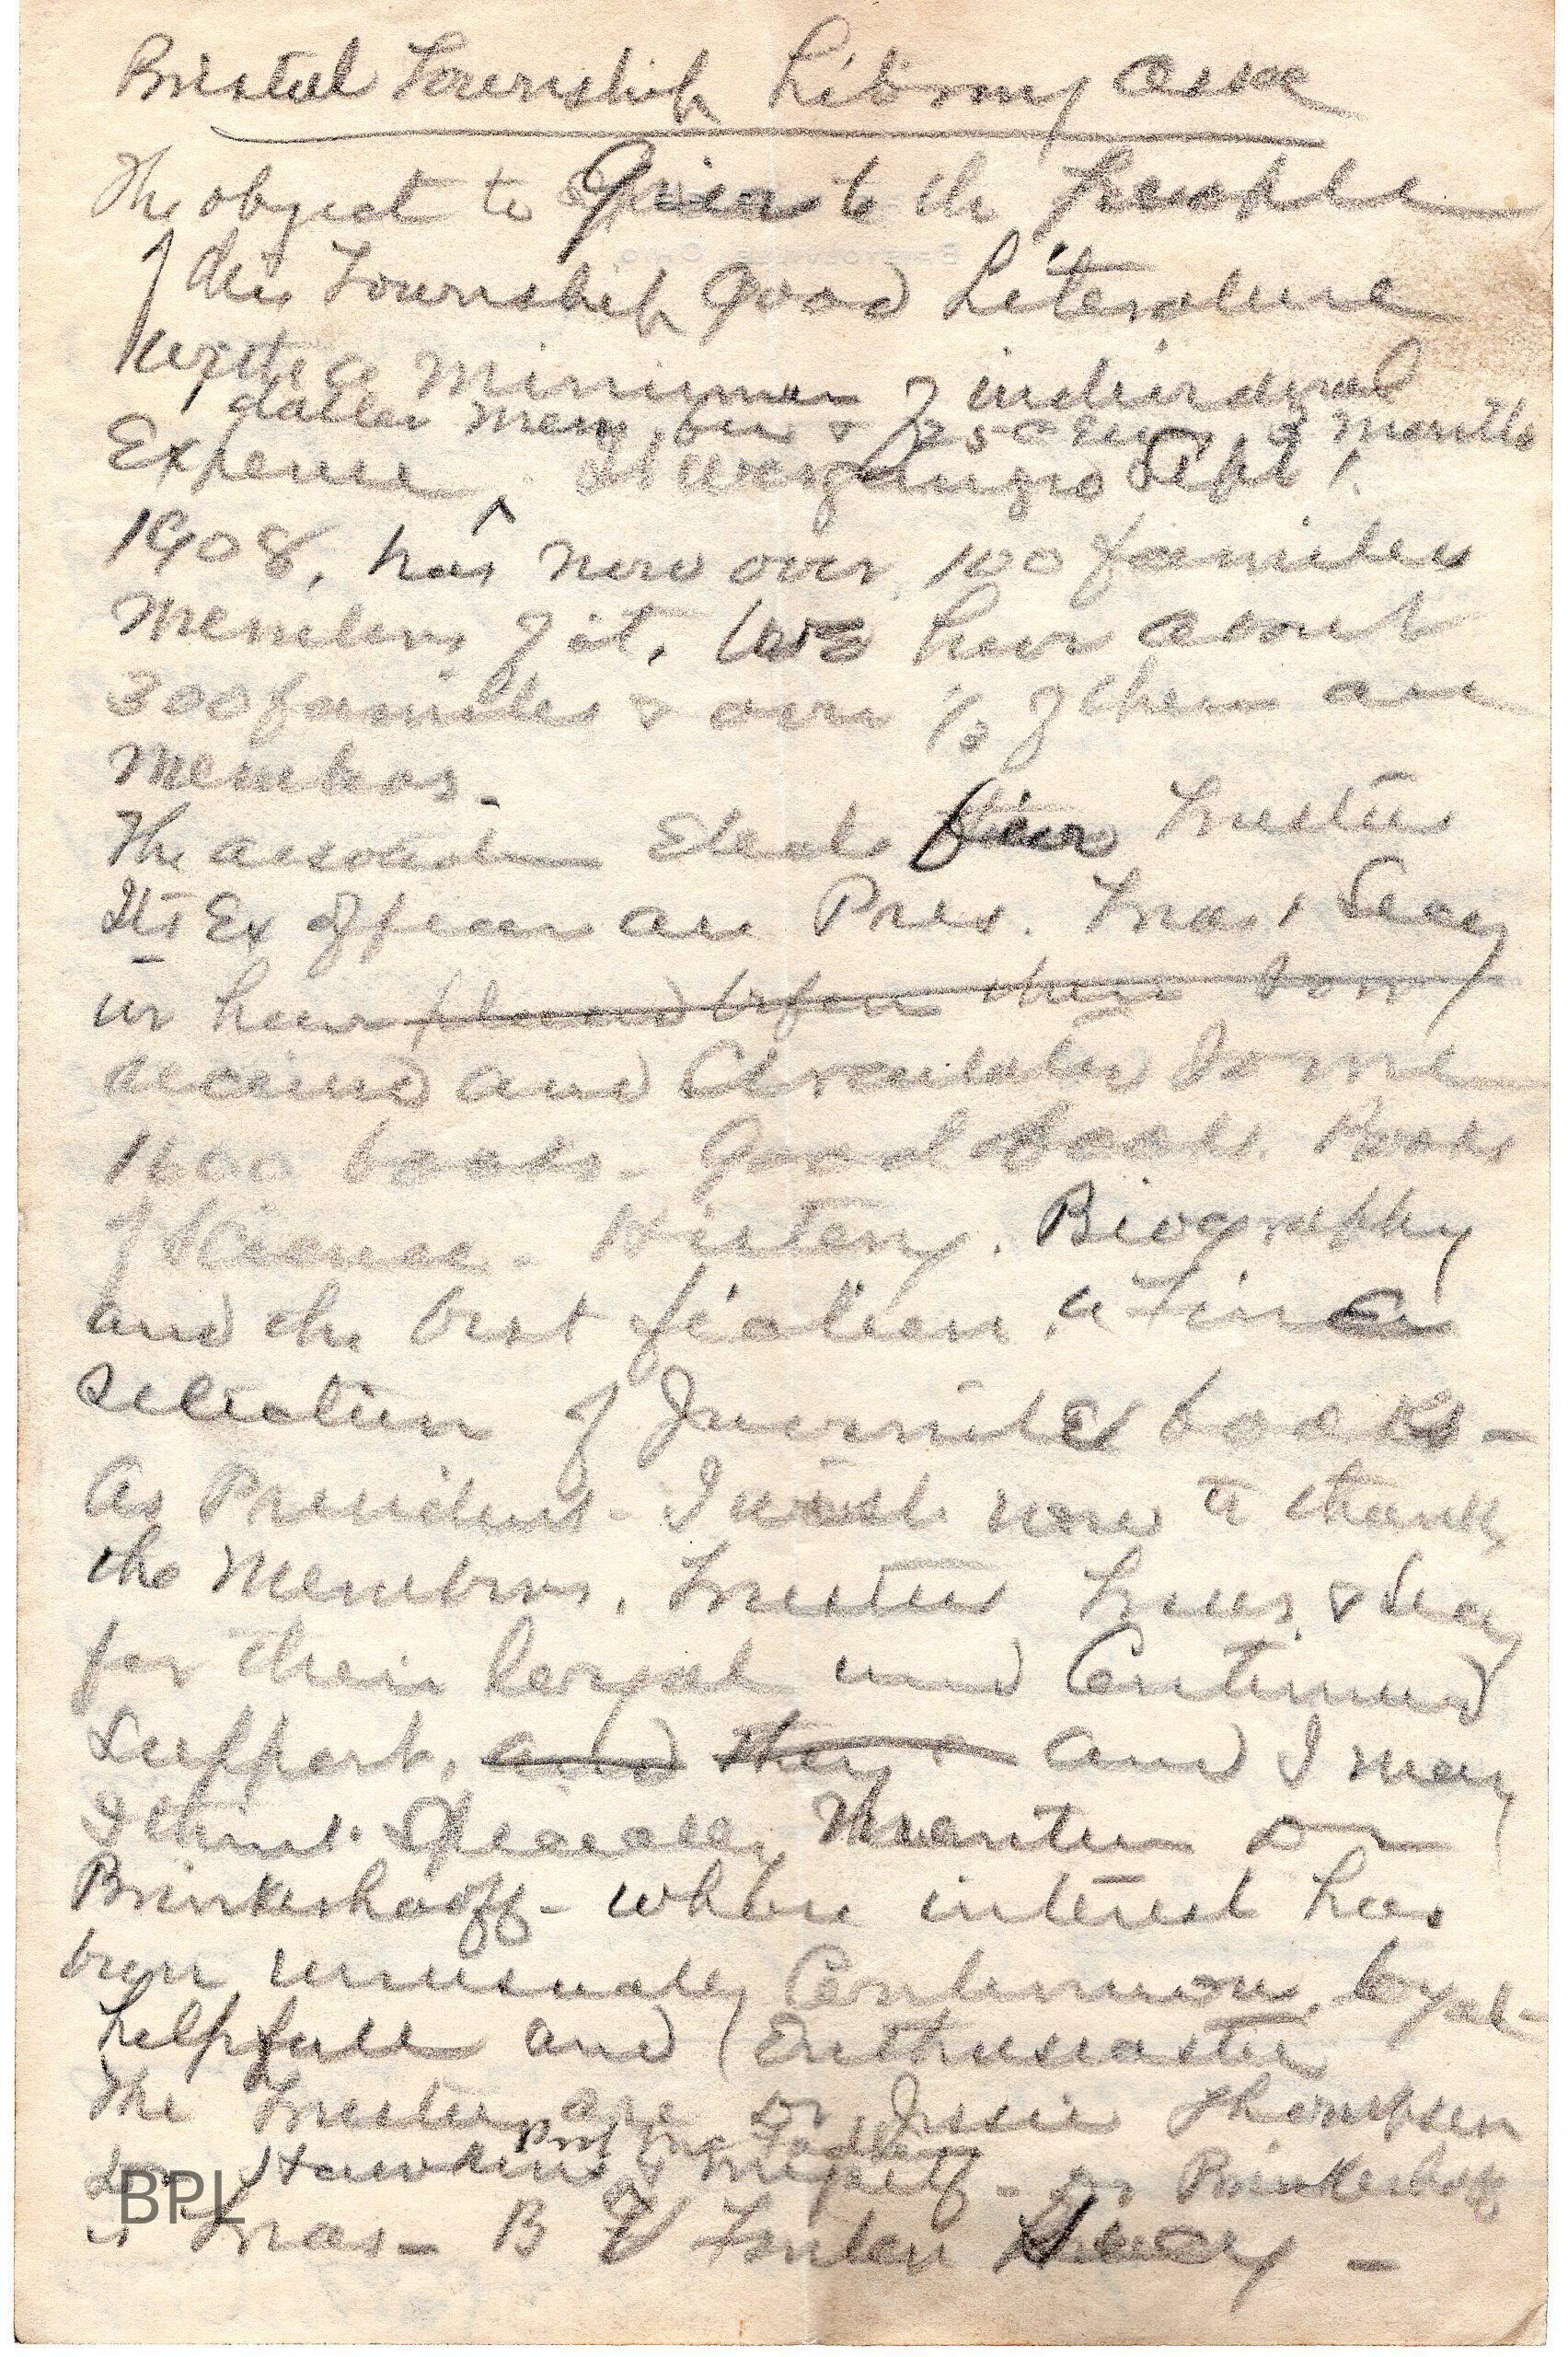 Bristol Township Library Assn
The object to Give to the people
of this Township Good Literature
with a minimum of individual
dollar members & 25 c every 3 months
Expense ^ It was organized Sept 1.
1908, has now over 100 families
members of it. We have about
300 families & over 1/3 of them are
members -
The association Elects five Trustees
Its Ex officers are Pres. Treas, Secy
we have placed before these town
received and Circulated Some
1600 books - Good books. Books
of Science - History. Biography
and the best fiction, a fine
selection of Juvenile books -
As President - I wish now to thank
the Members, Trustees Treas. & Secy
for their loyal and Continued
Support, and they and I may
I think Specially Mention Dr
Brinkerhoff - whose interest has
been unusually Continuous, loyal -
helpfull and Enthusiastic
The Trustees are Dr Jessie Thompson
Hawkins & myself - Dr Brinkerhoff
is Treas - B Secy -
BPL